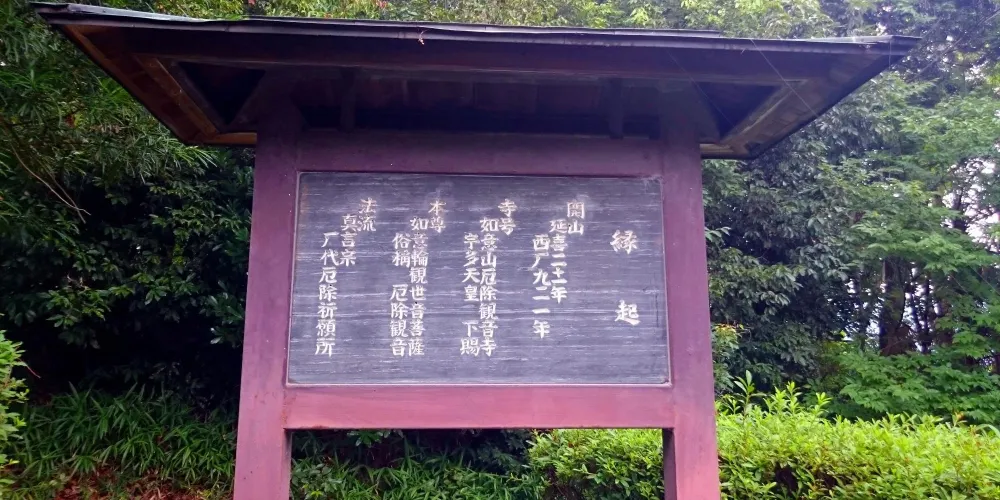 縁起
開山
延喜二十一年
西厂九二一年
寺号
如意山厄除観音寺
宇多天皇 下賜
本尊
如意輪観世音菩薩
俗稱 厄除観音
法流
真言宗
厂代厄除祈願所